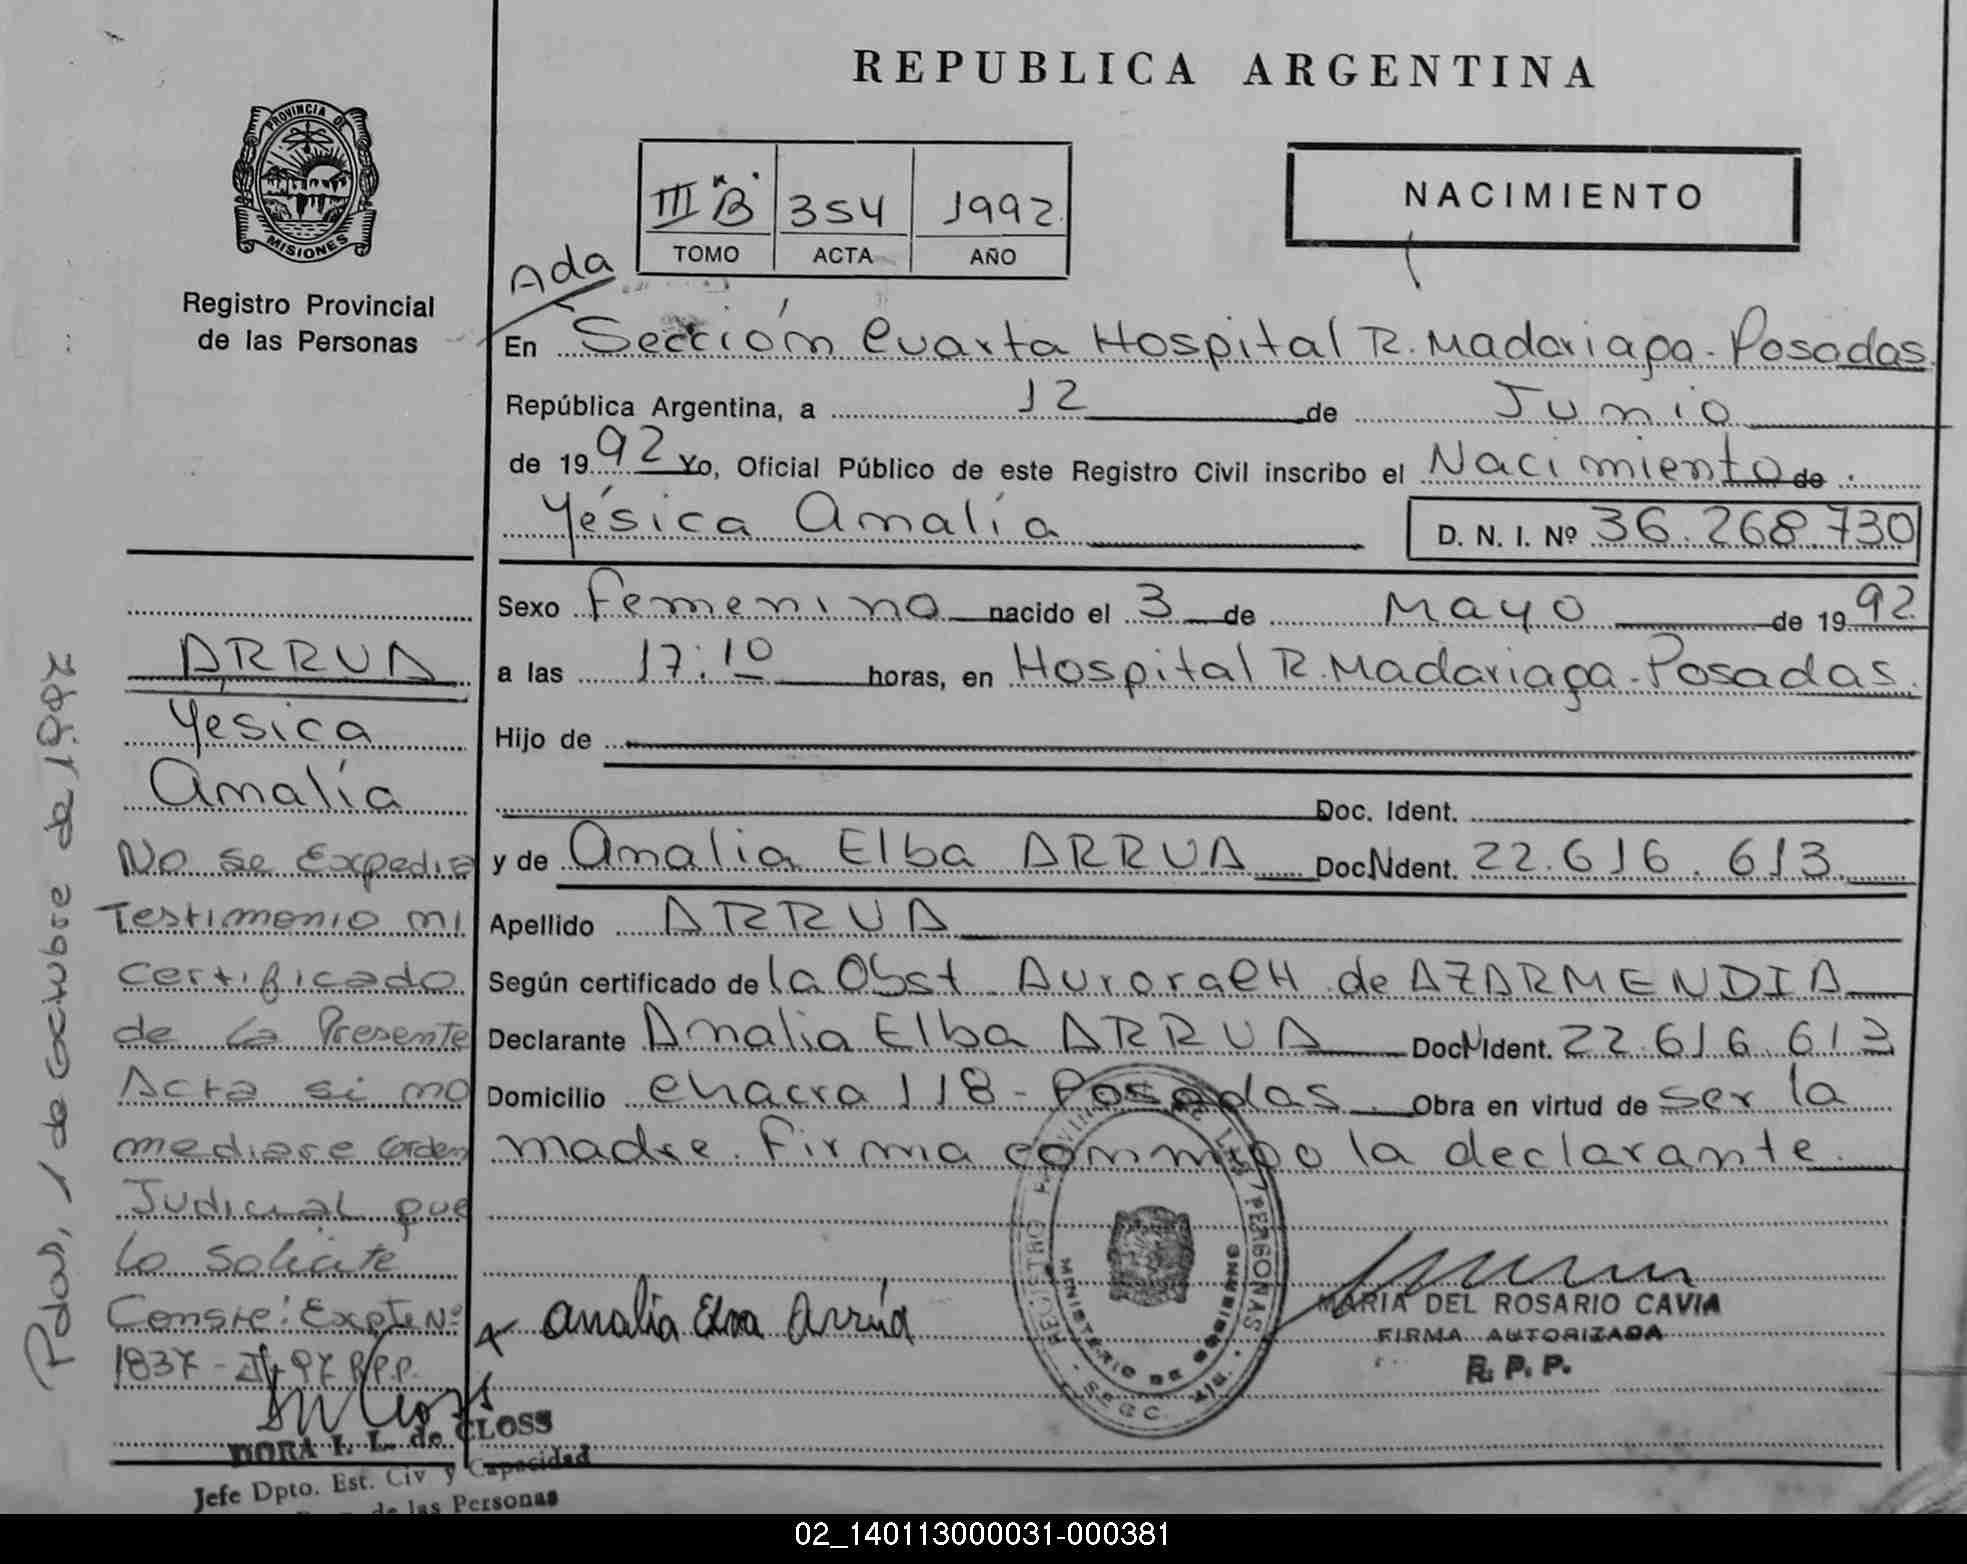 REPUBLICA ARGENTINA
PROVINCIA DE
MISIONES
Registro Provincial
de las Personas
III "B" 354 1992
TOMO ACTA AÑO
NACIMIENTO
Ada
En Sección Cuarta Hospital R. Madariaga - Posadas
República Argentina, a 12 de Junio
de 1992 Yo, Oficial Público de este Registro Civil inscribo el Nacimiento de
Yésica Amalía
D. N. I. Nº 36.268.730
Sexo Femenino nacido el 3 de Mayo de 1992
a las 17:10 horas, en Hospital R. Madariaga - Posadas.
Hijo de
Doc. Ident.
y de Amalia Elba ARRUA Doc. Ident. 22.616.613
Apellido ARRUA
Según certificado de la Obst Aurora CH de AZARMENDIA
Declarante Amalia Elba ARRUA Doc Ident. 22.616.613
Domicilio Chacra 118 - Posadas Obra en virtud de ser la
madre. Firma conmigo la declarante.
Amalia Elva Arrúa
MARIA DEL ROSARIO CAVIA
FIRMA AUTORIZADA
R. P. P.
ARRUA
Yesica
Amalía
No se Expedira
Testimonio ni
Certificado
de la Presente
Acta si no
mediare Orden
Judicial que
lo Solicite
Conste: Expte Nº
1837 - 97 R.P.P.
Pdas, 1 de Octubre de 1997
DORA I. L. de CLOSS
Jefe Dpto. Est. Civ y Capacidad
de las Personas
02_140113000031-000381